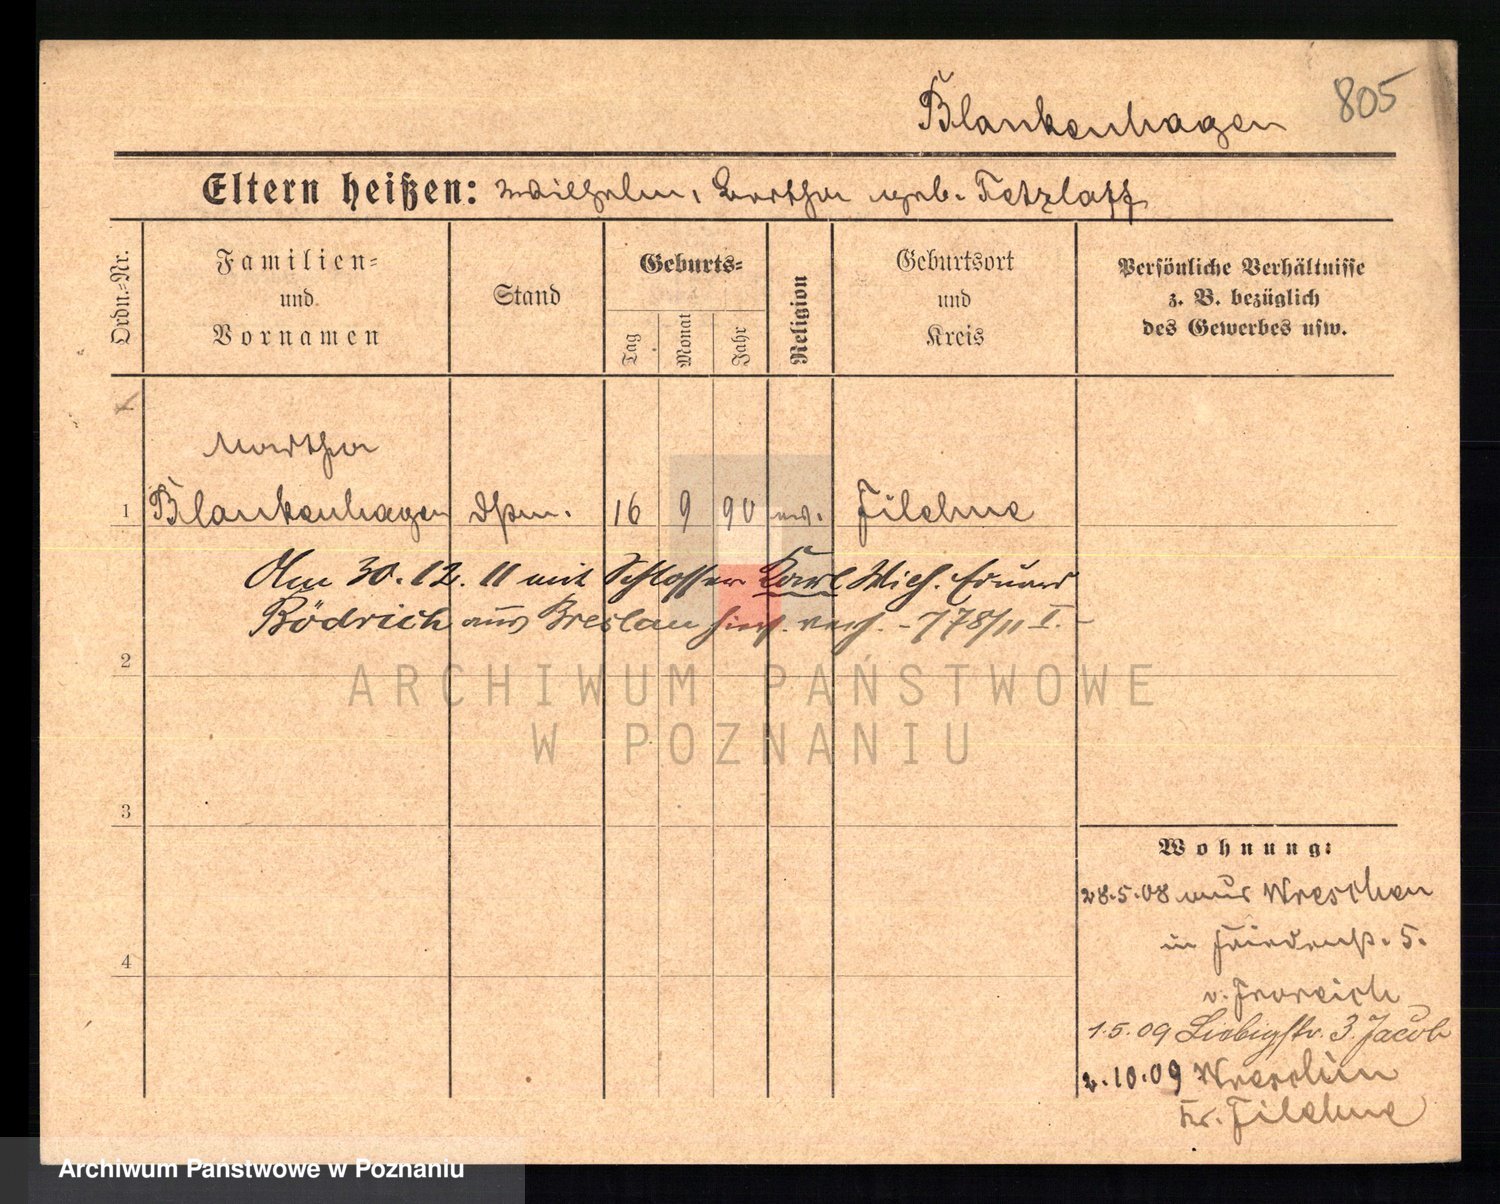 Blankenhagen 805
Eltern heißen: Wilhelm, Bertha geb. Tetzlaff
Ordn.-Nr.
Familien-
und
Vornamen
Stand
Geburts-
Tag
Monat
Jahr
Religion
Geburtsort
und
Kreis
Persönliche Verhältnisse
z. B. bezüglich
des Gewerbes usw.
Martha
1 Blankenhagen 16 9 90 ev. Filehne
Am 30.12.11 mit Schlosser Karl Eduard
Bödrich aus Breslau 778/11 I.
2
3
4
Wohnung:
28.5.08 aus Wreschen
in 5.
v.
1.5.09 Liebigstr. 3. Jacob
2.10.09
Kr. Filehne
ARCHIWUM PAŃSTWOWE
W POZNANIU
Archiwum Państwowe w Poznaniu